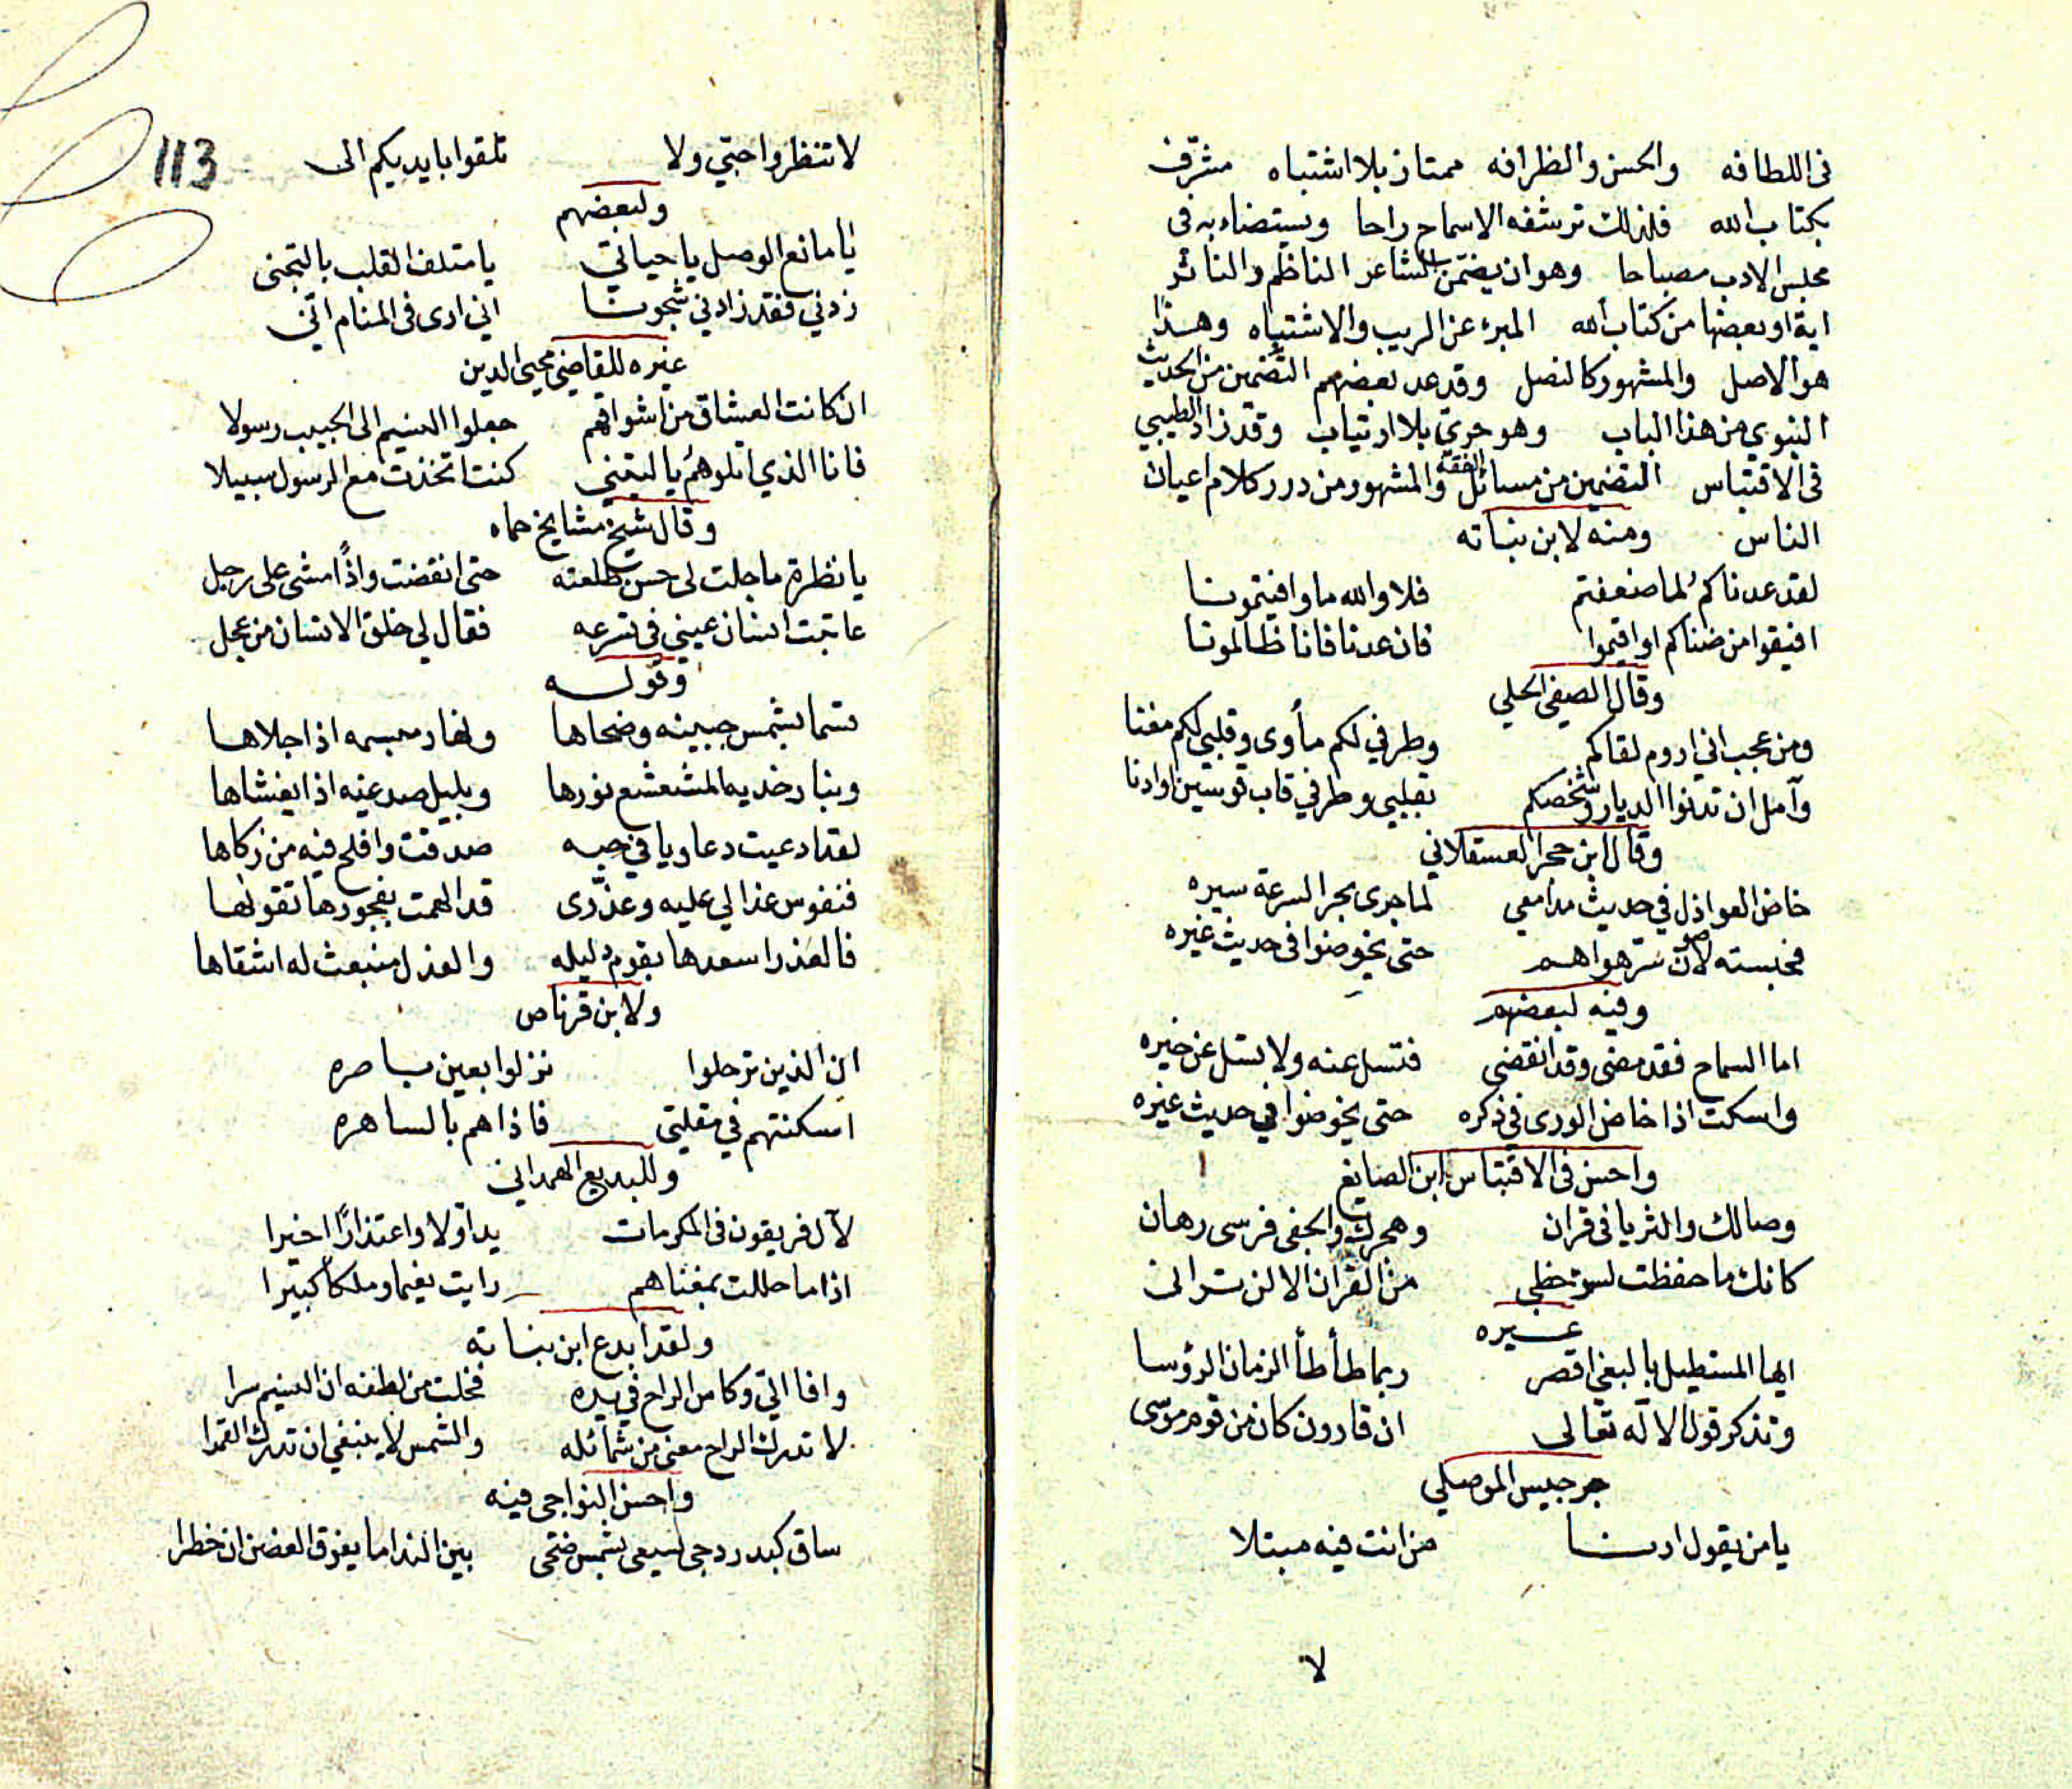 فى اللطافه والحسن والظرافه ممتاز بلا اشتباه مشرّف
بكتاب الله فلذلك ترشفه الاسماع راحا ويستضاء به فى
مجلس الادب مصباحا وهو ان يضمّن الشاعر الناظم والناثر
اية او بعضها من كتاب الله المبرء عن الريب والاشتباه وهذا
هو الاصل والمشهور كالنصل وقد عد بعضهم التضمين من الحديث
النبوي من هذا الباب وهو حريّ بلا ارتياب وقد زاد الطيبي
فى الاقتباس التضمين من مسائل الفقه والمشهور من درر كلام اعيان
الناس ومنه لابن نباته
لقد عدناكمُ لما ضعفتم فلا والله ما وافيتمونا
افيقوا من ضناكم او اقيموا فان عدنا فانا ظالمونا
وقال الصفي الحلي
ومن عجب اني اروم لقاكم وطرفي لكم مأوى وقلبي لكم مغنا
وآمل ان تدنوا الديار وشخصكم بقلبي وطرفي قاب قوسين او ادنا
وقال ابن حجر العسقلاني
خاض العواذل في حديث مدامعي لما جرى بحرا لسرعة سيره
فحبسته لاصون سرّ هواهم حتى يخوضوا فى حديث غيره
وفيه لبعضهم
اما السماح فقد مضى وقد انقضى فتسل عنه ولا تسل عن خيره
واسكت اذا خاض الورى في ذكره حتى يخوضوا في حديث غيره
واحسن فى الاقتباس ابن الصايغ
وصالك والثريا فى قران وهجرك والجفى فرسى رهان
كانك ما حفظت لسوء حظي من القران الا لن ترانى
غيره
ايها المستطيل بالبغي اقصر ربما طأطأ الزمان الرؤسا
وتذكر قول الالٓه تعالى ان قارون كان من قوم موسى
جرجيس الموصلي
يا من يقول ارنا من انت فيه مبتلا
لا
113
لا تنظروا حبتي ولا تلقوا بايديكم الى
ولبعضهم
يا مانع الوصل يا حياتي يا متلف القلب بالتجنى
زدني فقد زادني شجونا اني ارى فى المنام انّى
غيره للقاضي محيى الدين
ان كانت العشاق من اشواقهم جعلوا النسيم الى الحبيب رسولا
فانا الذي اتلوهمُ يا ليتني كنت اتخذت مع الرسول سبيلا
وقال شيخ مشايخ حماه
يا نظرة ما جلت لى حسن طلعته حتى انقضت واذًا امشى على رجل
عاتبت انسان عيني في تسرعه فقال لي خلق الانسان من عجل
وقوله
قسما بشمس جبينه وضحاها ونهار مبسمه اذا جلاها
وبنار خديه المشعشع نورها وبليل صدغيه اذا يغشاها
لقد ادعيت دعاويا في حبه صدقت وافلح فيه من زكاها
فنفوس عذالي عليه وعذّرى قد الهمت بفجورها تقواها
فالعذر اسعدها بقوم دليله والعذل منبعث له اشقاها
ولابن قرناص
ان الذين ترحلوا نزلوا بعين باصره
اسكنتهم في مقلتي فاذا هم بالساهره
وللبديع الهمداني
لآل فريقون فى المكرمات يد اوّلا واعتذارًا اخيرا
اذا ما حللت بمغناهم رايت نعيما وملكاً كبيرا
ولقد ابدع ابن نباته
وافا اليّ وكاس الراح في يده فخلت من لطفه ان النسيم سرا
لا تدرك الراح معنى من شمائله والشمس لا ينبغي ان تدرك القمرا
واحسن النواجى فيه
ساق كبدر دجى يسعى بشمس ضحى بين الندا ما يفوق الغصن ان خطرا